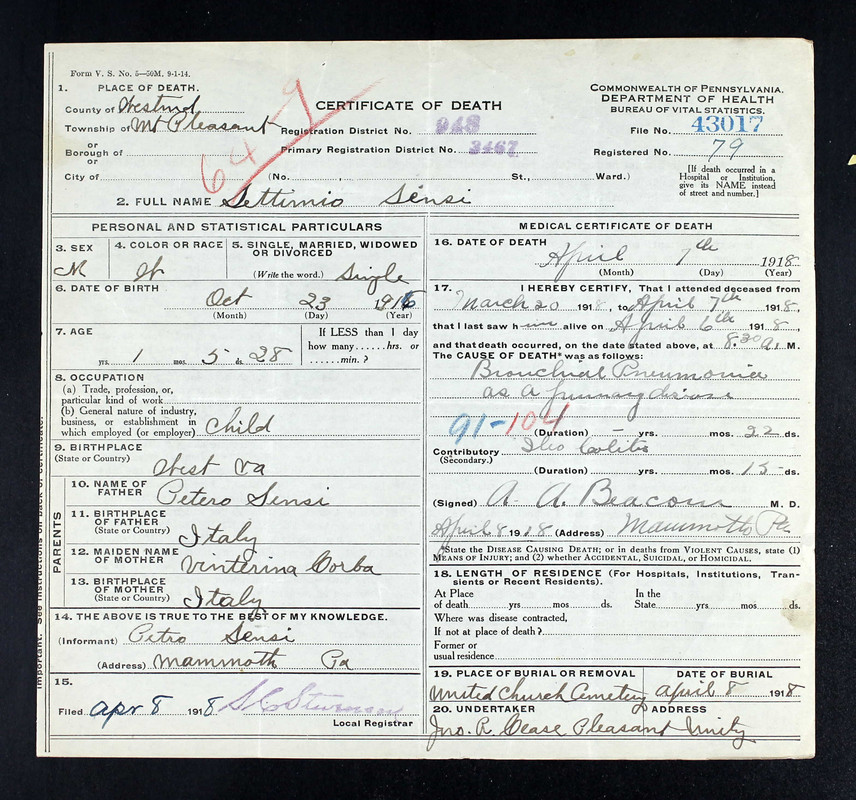 Form V. S. No. 5—50M. 9-1-14.
1. PLACE OF DEATH.
County of Westmd
Township of Mt Pleasant
or
Borough of
or
City of
64-9
CERTIFICATE OF DEATH
Registration District No. 948
Primary Registration District No. 3467
(No. , St., Ward.)
COMMONWEALTH OF PENNSYLVANIA.
DEPARTMENT OF HEALTH
BUREAU OF VITAL STATISTICS.
File No. 43017
Registered No. 79
[If death occurred in a
Hospital or Institution,
give its NAME instead
of street and number.]
2. FULL NAME Settimio Sensi
PERSONAL AND STATISTICAL PARTICULARS
3. SEX
M
4. COLOR OR RACE
W
5. SINGLE, MARRIED, WIDOWED
OR DIVORCED
(Write the word.) Single
6. DATE OF BIRTH
Oct 23 1916
(Month) (Day) (Year)
7. AGE
yrs. 1 mos. 5 ds. 28
If LESS than 1 day
how many......hrs. or
......min.?
8. OCCUPATION
(a) Trade, profession, or,
particular kind of work
(b) General nature of industry,
business, or establishment in
which employed (or employer) Child
9. BIRTHPLACE
(State or Country)
West Va
PARENTS
10. NAME OF
FATHER
Petero Sensi
11. BIRTHPLACE
OF FATHER
(State or Country)
Italy
12. MAIDEN NAME
OF MOTHER
Vinterina Corba
13. BIRTHPLACE
OF MOTHER
(State or Country)
Italy
14. THE ABOVE IS TRUE TO THE BEST OF MY KNOWLEDGE.
(Informant) Petro Sensi
(Address) Mammoth Pa
15.
Filed Apr 8 1918
Local Registrar
MEDICAL CERTIFICATE OF DEATH
16. DATE OF DEATH
April 7th 1918
(Month) (Day) (Year)
17. I HEREBY CERTIFY, That I attended deceased from
March 20 1918, to April 7th 1918,
that I last saw h im alive on April 6th 1918,
and that death occurred, on the date stated above, at 8.30 a. M.
The CAUSE OF DEATH* was as follows:
Bronchial Pneumonia
as a primary disease
91-104
(Duration) – yrs. mos. 22 ds.
Contributory Ileo Colitis
(Secondary.)
(Duration) yrs. mos. 15 ds.
(Signed) A. A. Beacom M. D.
April 8 1918 (Address) Mammoth Pa
*State the DISEASE CAUSING DEATH; or in deaths from VIOLENT CAUSES, state (1)
MEANS OF INJURY; and (2) whether ACCIDENTAL, SUICIDAL, OR HOMICIDAL.
18. LENGTH OF RESIDENCE (For Hospitals, Institutions, Tran-
sients or Recent Residents).
At Place In the
of death yrs mos ds. State yrs mos ds.
Where was disease contracted,
If not at place of death?
Former or
usual residence
19. PLACE OF BURIAL OR REMOVAL
United Church Cemetery
DATE OF BURIAL
April 8 1918
20. UNDERTAKER
Jno. R. Cease
ADDRESS
Pleasant Unity